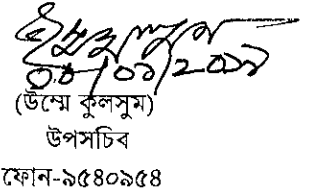 ০৩/০১/২০১৯
(উম্মে কুলসুম)
উপসচিব
ফোন-৯৫৪০৯৫৪